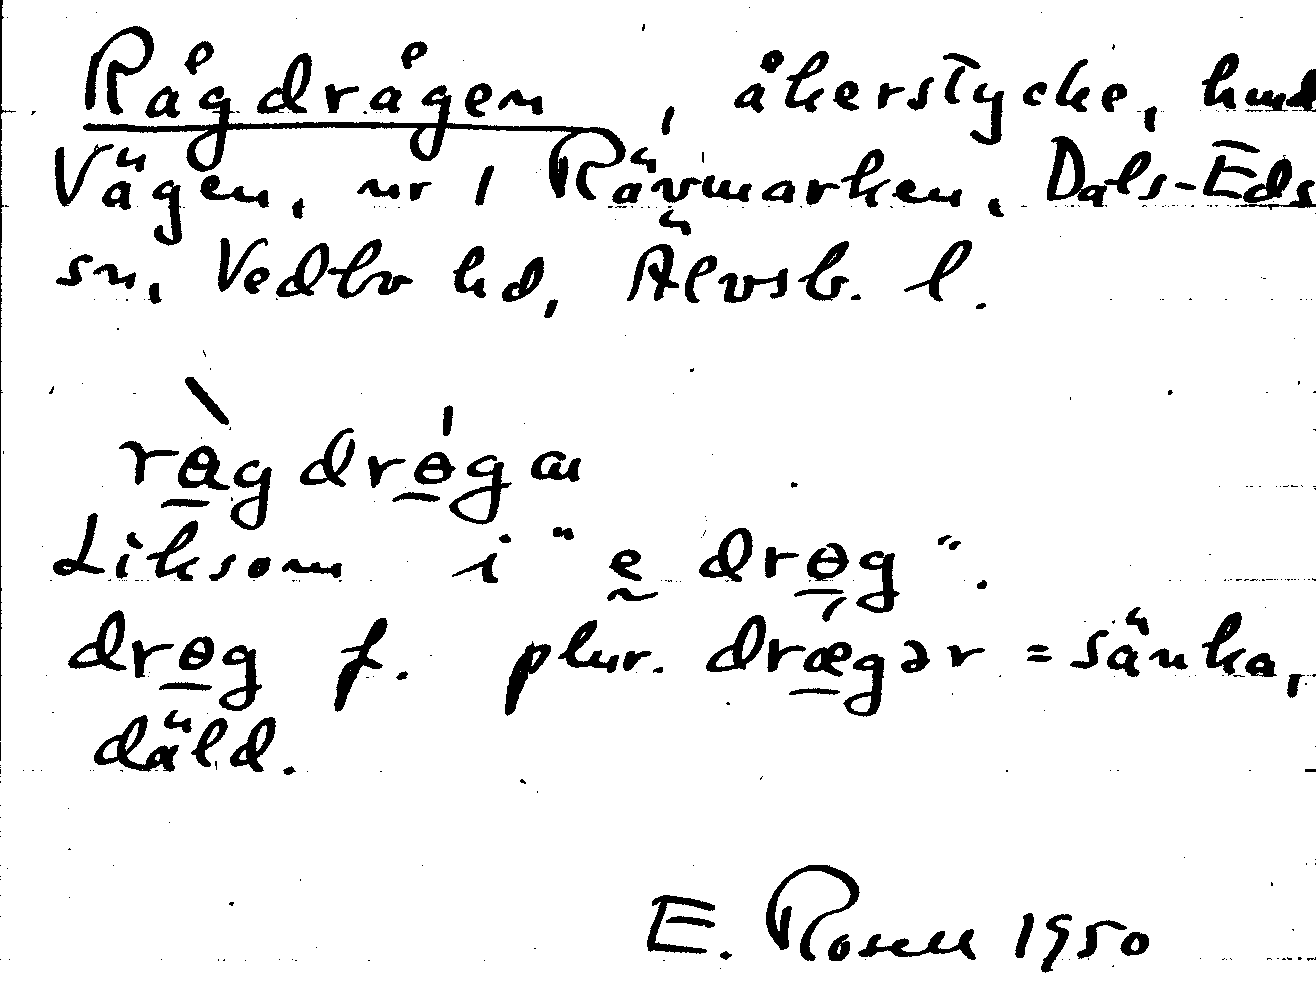 Rågdrågen, åkerstycke, hmd
Vägen, nr 1 Rävmarken, Dals-Eds
sn, Vedbo hd, Älvsb. l.
rɵ̲̀gdrɵ̲́gan
Liksom i "ḛ drɵ̲g".
drɵ̲g f. plur. drǽ̲gər = sänka,
däld.
E. Rosell 1950